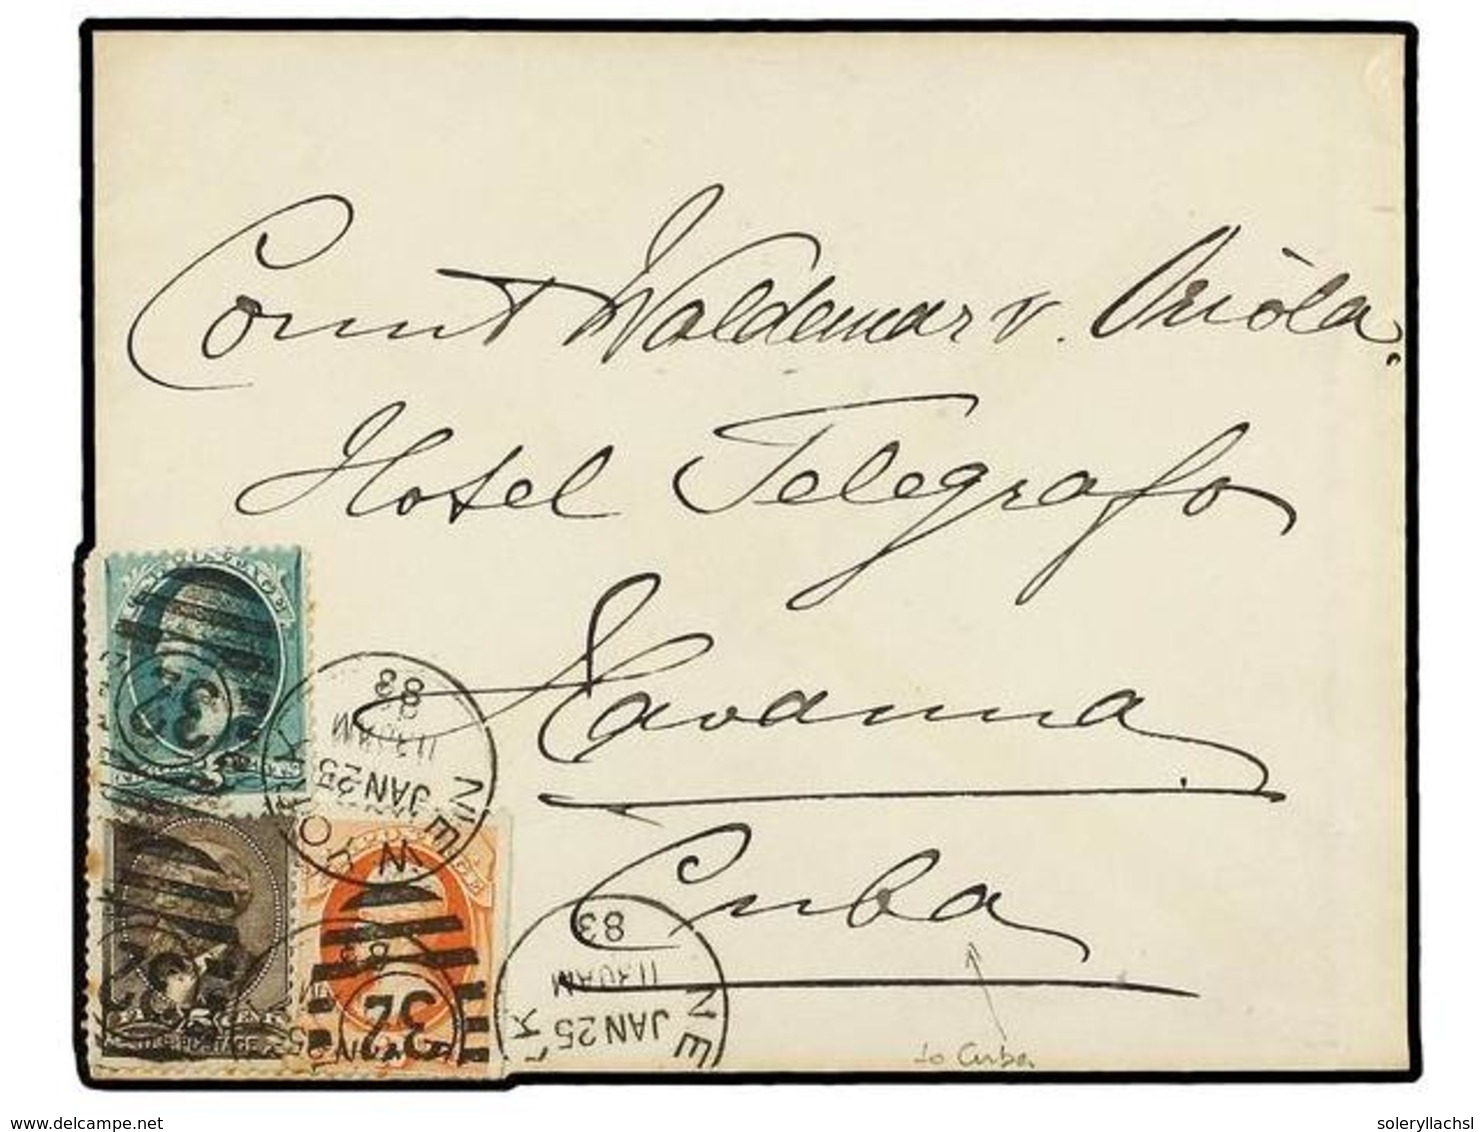 Count Waldemar v. Oriòla.
Hotel Telegrafo
Havanna
Cuba
to Cuba
NEW YORK
JAN 25
11 30 AM
83
32
NEW YORK
JAN 25
11 30 AM
83
32
U.S. POSTAGE
www.delcampe.net
soleryllachsl